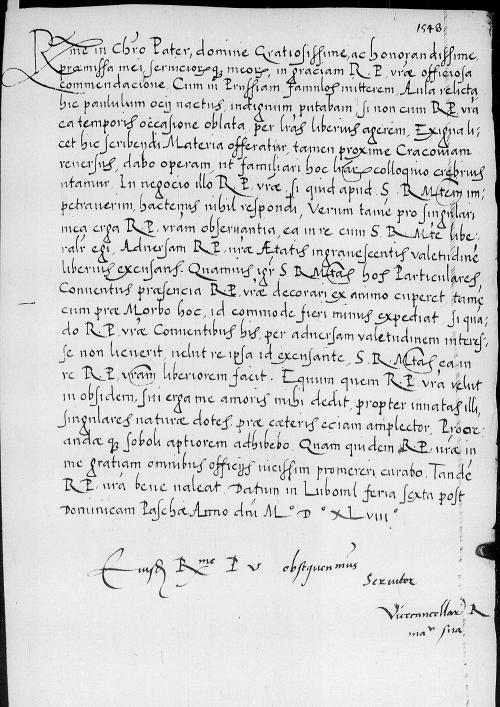 1548
Rme in Chro Pater, domine Gratiosissime, ac honorandissime,
præmissa mei, serviciorq, meor, in graciam R. P. vræ officiosa
commendacione. Cum in Prussiam famulos mitterem, Aula relicta
hic paululum ocij nactus, indignum putabam, si non cum R.P. vra
ea temporis occasione oblata, per lras liberius agerem. Exigua li-
cet hic scribendi Materia offeratur, tamen proxime Cracoviam
reversus, dabo operam, ut familiari hoc lrar colloquio crebrius
utamur. In negocio illo R. P. vræ, si quid apud S. R. Mtem im-
petraverim, hactenus nihil respondi, Verum tamẽ pro singulari
mea erga R.P. vram observantia, ea in re cum S. R. Mte libe-
rali egi, Adversam R.P. vræ Ætatis ingravescentis valetudinẽ
liberius excusans. Quamvis igr S. R. Mtas hos Particulares,
Conventus præsencia R.P. vræ decorari, ex animo cuperet, tamẽ
cum præ Morbo hoc, id commode fieri minus expediat. Si qua-
do R.P. vræ Conventibus his, per adversam valetudinem interes-
se non licuerit, velut re ipsa id excusante, S. R. Mtas ea in
re R.P. vram liberiorem facit. Equum quem R.P. vra velut
in obsidem, sui erga me amoris mihi dedit, propter innatas illi,
singulares naturæ dotes, præ cæteris eciam amplector, Procre-
andæ q, soboli aptiorem adhibebo. Quam quidem R.P. vræ in
me gratiam omnibus officijs vicissim promereri curabo. Tandẽ
R.P. vra bene valeat. Datum in Luboml feria sexta post
Dominicam Paschæ Anno dni M.° D.° XLviii.°
Eiusd Rme P V obsequenmus
Servitor
Vicecancellar R
mau sua